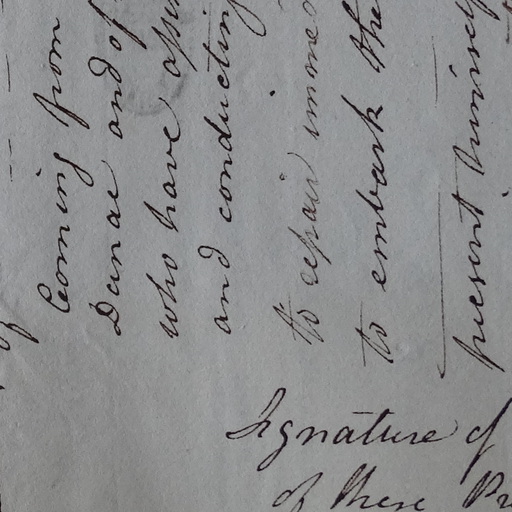 Coming from
Danae and of
who have
and conducting
to repair
to embark the
present
Signature of
of these